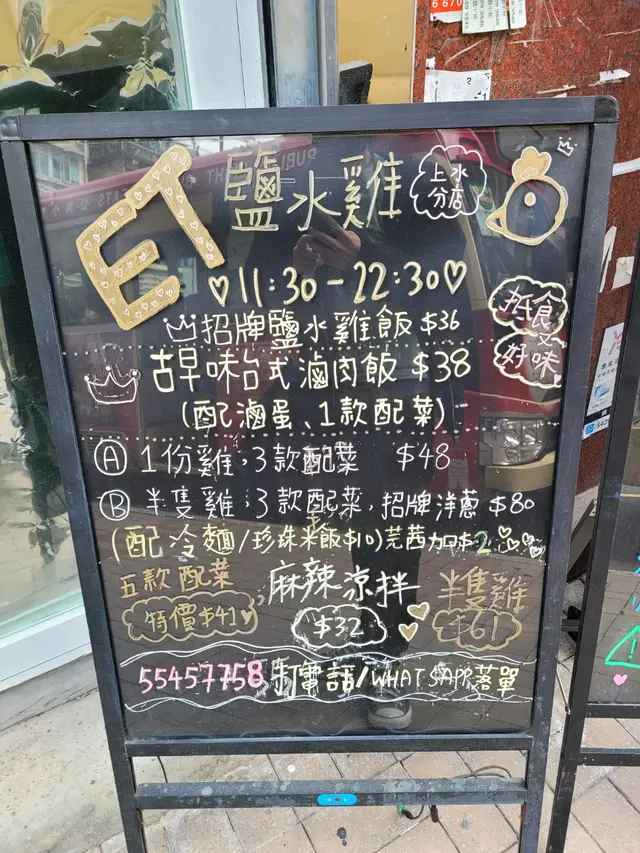 ET 鹽水雞
上水分店
♡11:30-22:30♡
抵食又好味
招牌鹽水雞飯 $36
古早味台式滷肉飯 $38
(配滷蛋、1款配菜)
Ⓐ 1份雞，3款配菜 $48
Ⓑ 半隻雞，3款配菜，招牌洋蔥 $80
(配冷麵/珍珠米飯$10)芫茜加$2
五款配菜 特價$41
麻辣涼拌 $32
半隻雞 $61
55457758 打電話/WHATSAPP落單